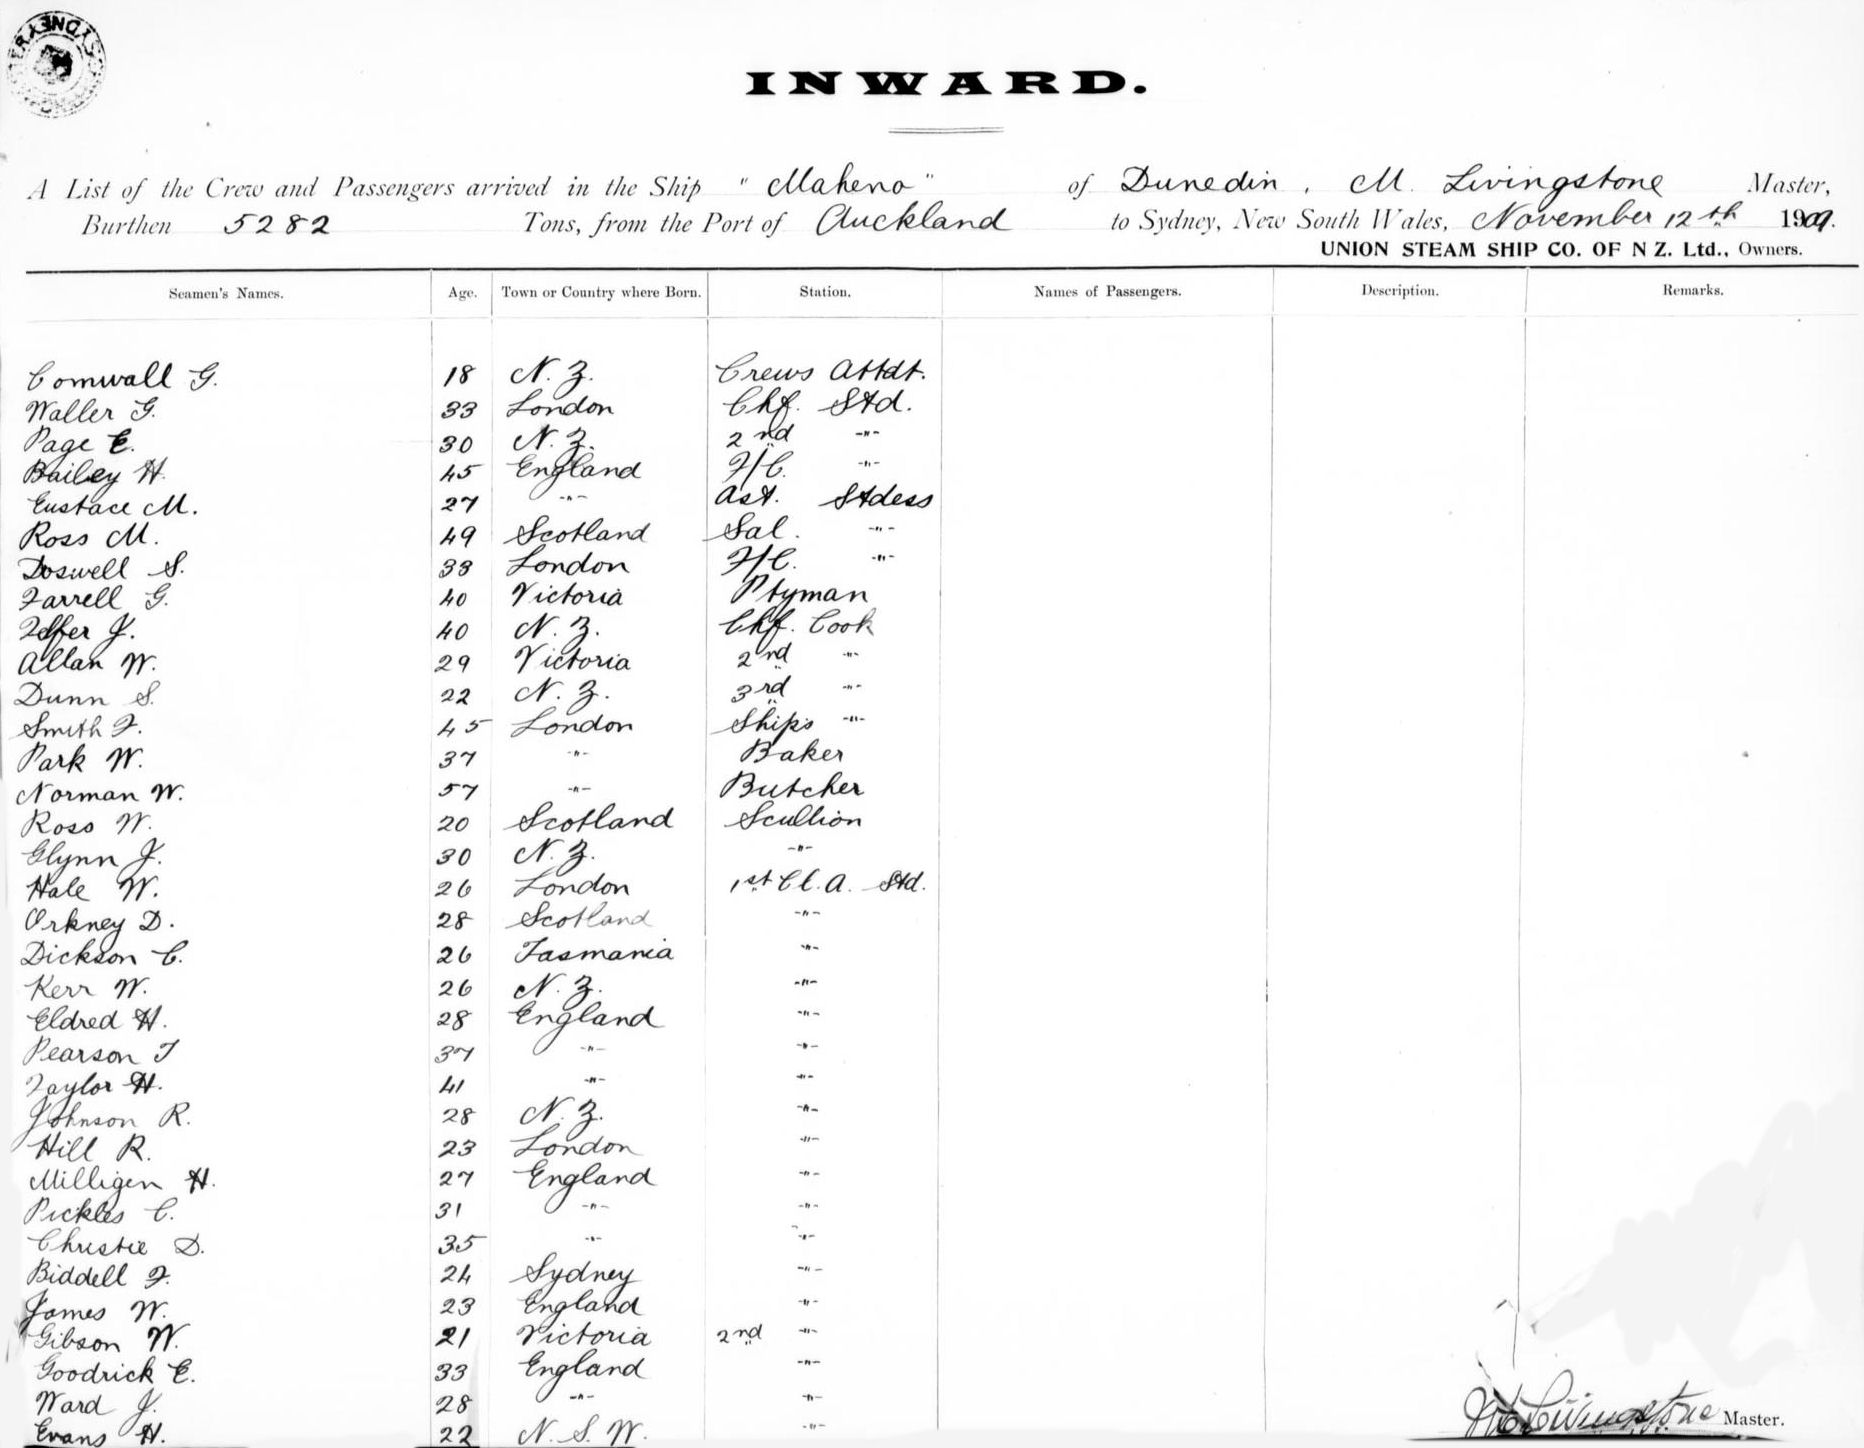 SYDNEY
INWARD.
A List of the Crew and Passengers arrived in the Ship "Maheno" of Dunedin, M. Livingstone Master,
Burthen 5282 Tons, from the Port of Auckland to Sydney, New South Wales, November 12th 1909.
UNION STEAM SHIP CO. OF N Z. Ltd., Owners.
Seamen's Names. Age. Town or Country where Born. Station. Names of Passengers. Description. Remarks.
Cornwall G. 18 N. Z. Crews Attdt.
Waller G. 33 London Chf. Std.
Page E. 30 N. Z. 2nd -"-
Bailey H. 45 England F/C. -"-
Eustace M. 27 -"- Ast. Stdess
Ross M. 49 Scotland Sal. -"-
Doswell S. 33 London F/C. -"-
Farrell G. 40 Victoria Ptyman
J. 40 N. Z. Chf. Cook
Allan W. 29 Victoria 2nd -"-
Dunn S. 22 N. Z. 3rd -"-
Smith F. 45 London Ships -"-
Park W. 37 -"- Baker
Norman W. 57 -"- Butcher
Ross W. 20 Scotland Scullion
Glynn J. 30 N. Z. -"-
Hale W. 26 London 1st Cl. A. Std.
Orkney D. 28 Scotland -"-
Dickson C. 26 Tasmania -"-
Kerr W. 26 N. Z. -"-
Eldred H. 28 England -"-
Pearson T 37 -"- -"-
Taylor H. 41 -"- -"-
Johnson R. 28 N. Z. -"-
Hill R. 23 London -"-
Milligen H. 27 England -"-
Pickles C. 31 -"- -"-
Christie D. 35 -"- -"-
Biddell F. 24 Sydney -"-
James W. 23 England -"-
Gibson W. 21 Victoria 2nd -"-
Goodrick E. 33 England -"-
Ward J. 28 -"- -"-
Evans H. 22 N. S. W. -"-
Livingstone Master.